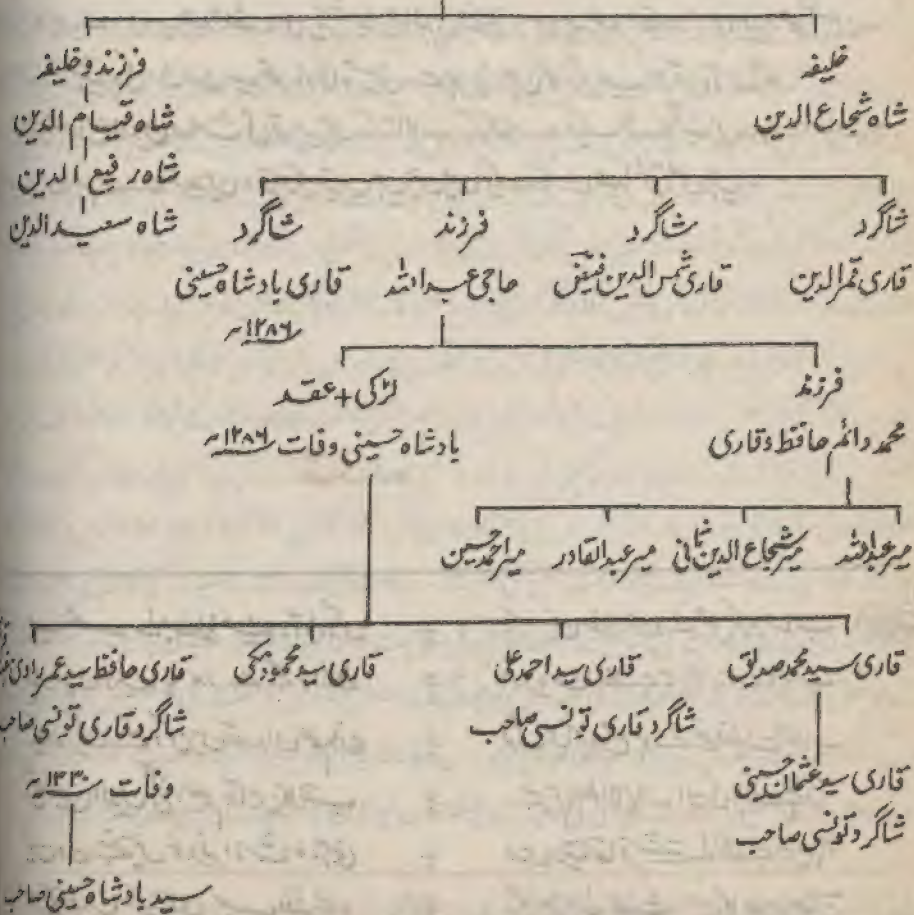 خلیفہ
شاہ شجاع الدین
فرزند و خلیفہ
شاہ قیام الدین
شاہ رفیع الدین
شاہ سعید الدین
شاگرد
قاری قمر الدین
شاگرد
قاری شمس الدین فیض
فرزند
حاجی عبداللہ
شاگرد
قاری بادشاہ حسینی
۱۲۸۶ھ
فرزند
محمد دائم حافظ و قاری
لڑکی + عقد
بادشاہ حسینی وفات ۱۲۸۶ھ
میر عبداللہ
میر شجاع الدین ثانی
میر عبدالقادر
میر احمد حسین
قاری سید محمد صدیق
قاری سید احمد علی
شاگرد قاری تونسی صاحب
قاری سید محمود مکی
قاری حافظ سید عمر
شاگرد قاری تونسی صاحب
وفات ۱۳۳۰ھ
قاری سید عثمان حسینی
شاگرد تونسی صاحب
سید بادشاہ حسینی صاحب